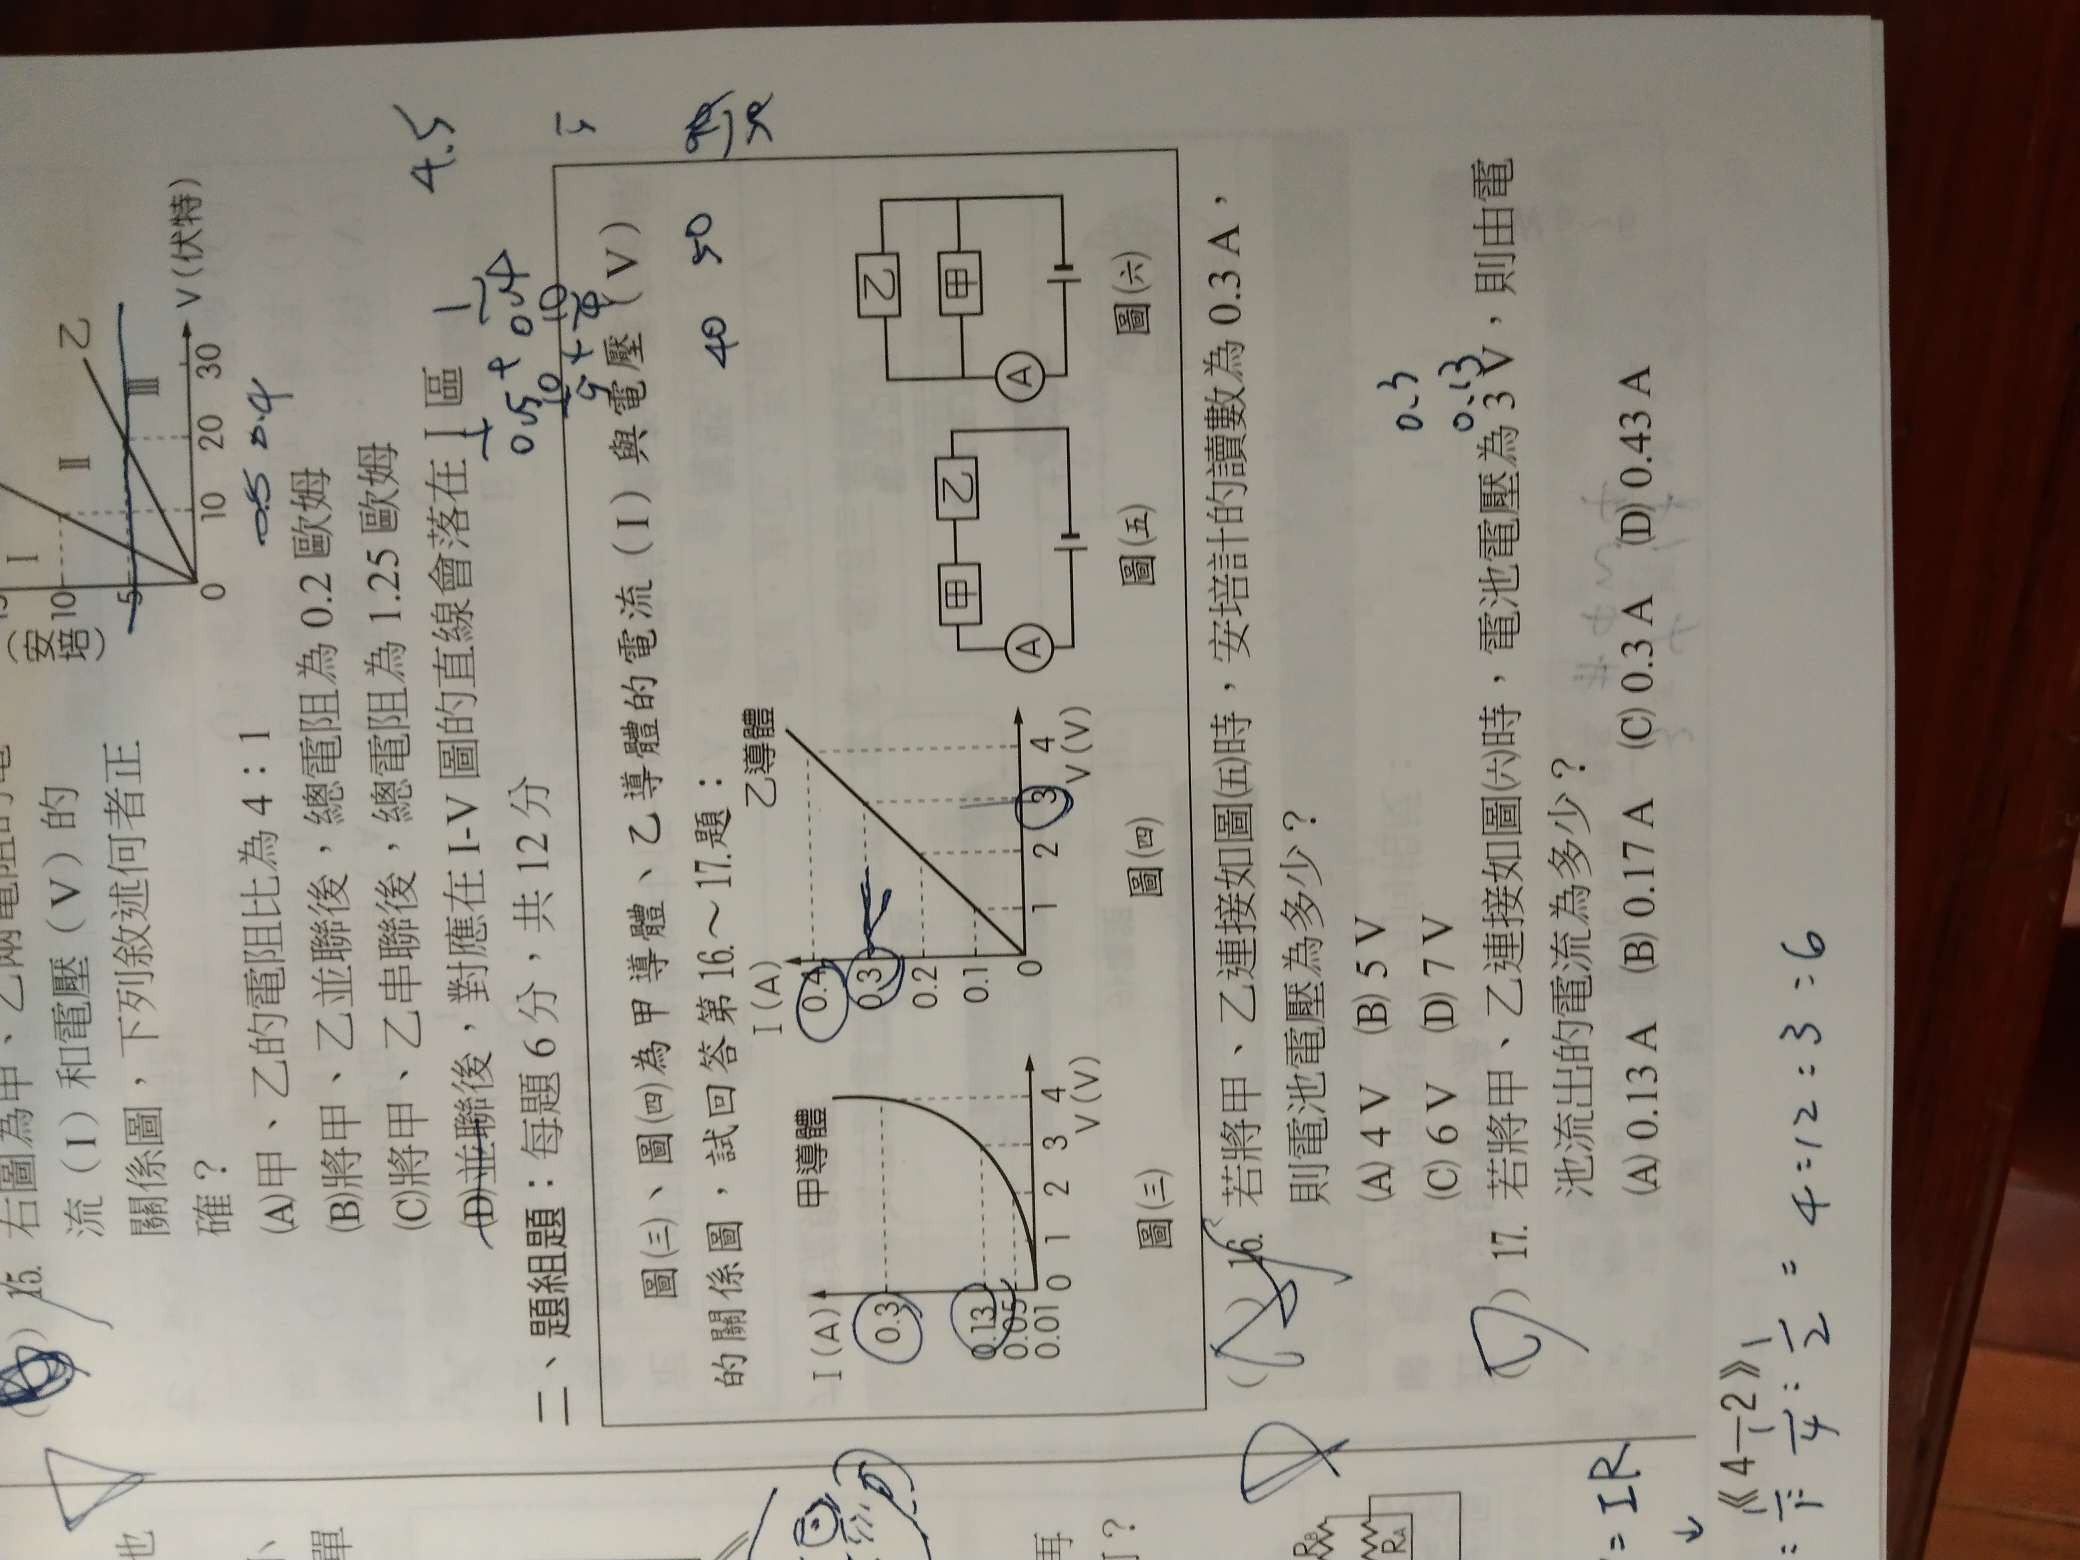 15. 右圖為甲、乙兩電阻的電
流（I）和電壓（V）的
關係圖，下列敘述何者正
確？
(安培)
10
5
0
10
20
30
V（伏特）
I
II
III
乙
0.5 0.4
(A)甲、乙的電阻比為 4：1
(B)將甲、乙並聯後，總電阻為 0.2 歐姆
(C)將甲、乙串聯後，總電阻為 1.25 歐姆
(D)並聯後，對應在 I-V 圖的直線會落在 I 區
4.5
二、題組題：每題 6 分，共 12 分
圖(三)、圖(四)為甲導體、乙導體的電流（I）與電壓（V）
的關係圖，試回答第 16.～17.題：
40 50
I (A)
甲導體
0.3
0.13
0.05
0.01
0 1 2 3 4
V (V)
圖(三)
I (A)
乙導體
0.4
0.3
0.2
0.1
0 1 2 3 4
V (V)
圖(四)
甲 乙
A
圖(五)
乙
甲
A
圖(六)
( ) 16. 若將甲、乙連接如圖(五)時，安培計的讀數為 0.3 A，
則電池電壓為多少？
(A) 4 V (B) 5 V
(C) 6 V (D) 7 V
0.3
0.13
( ) 17. 若將甲、乙連接如圖(六)時，電池電壓為 3 V，則由電
池流出的電流為多少？
(A) 0.13 A (B) 0.17 A (C) 0.3 A (D) 0.43 A
《4－2》
= 4:12=3:6
= IR
RB
RA